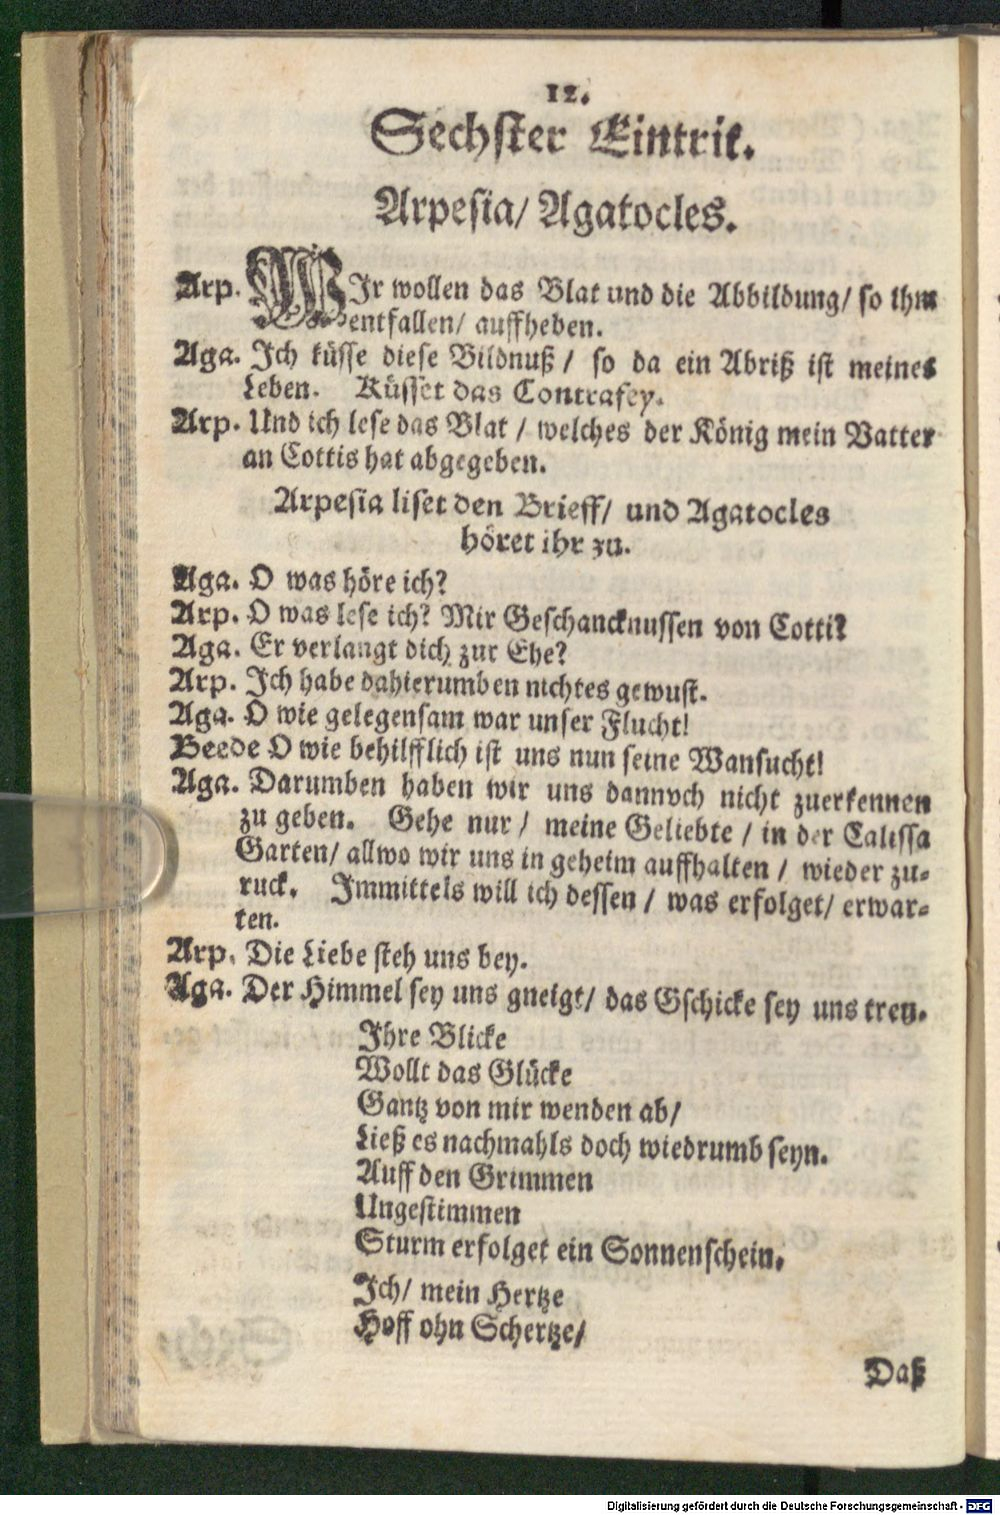 12.
Sechster Eintrit.
Arpesia/ Agatocles.
Arp. WIr wollen das Blat und die Abbildung/ so ihm
entfallen/ auffheben.
Aga. Ich küsse diese Bildnuß / so da ein Abriß ist meines
Leben. Küsset das Contrafey.
Arp. Und ich lese das Blat / welches der König mein Vatter
an Cottis hat abgegeben.
Arpesia liset den Brieff/ und Agatocles
höret ihr zu.
Aga. O was höre ich?
Arp. O was lese ich? Mir Geschancknussen von Cotti?
Aga. Er verlangt dich zur Ehe?
Arp. Ich habe dahierumben nichtes gewust.
Aga. O wie gelegensam war unser Flucht!
Beede O wie behilfflich ist uns nun seine Wansucht!
Aga. Darumben haben wir uns dannoch nicht zuerkennen
zu geben. Gehe nur / meine Geliebte / in der Calissa
Garten/ allwo wir uns in geheim auffhalten / wieder zu-
ruck. Immittels will ich dessen / was erfolget/ erwar-
ten.
Arp. Die Liebe steh uns bey.
Aga. Der Himmel sey uns gneigt/ das Gschicke sey uns treu.
Ihre Blicke
Wollt das Glücke
Gantz von mir wenden ab/
Ließ es nachmahls doch wiedrumb seyn.
Auff den Grimmen
Ungestimmen
Sturm erfolget ein Sonnenschein.
Ich/ mein Hertze
Hoff ohn Schertze/
Daß
Digitalisierung gefördert durch die Deutsche Forschungsgemeinschaft - DFG